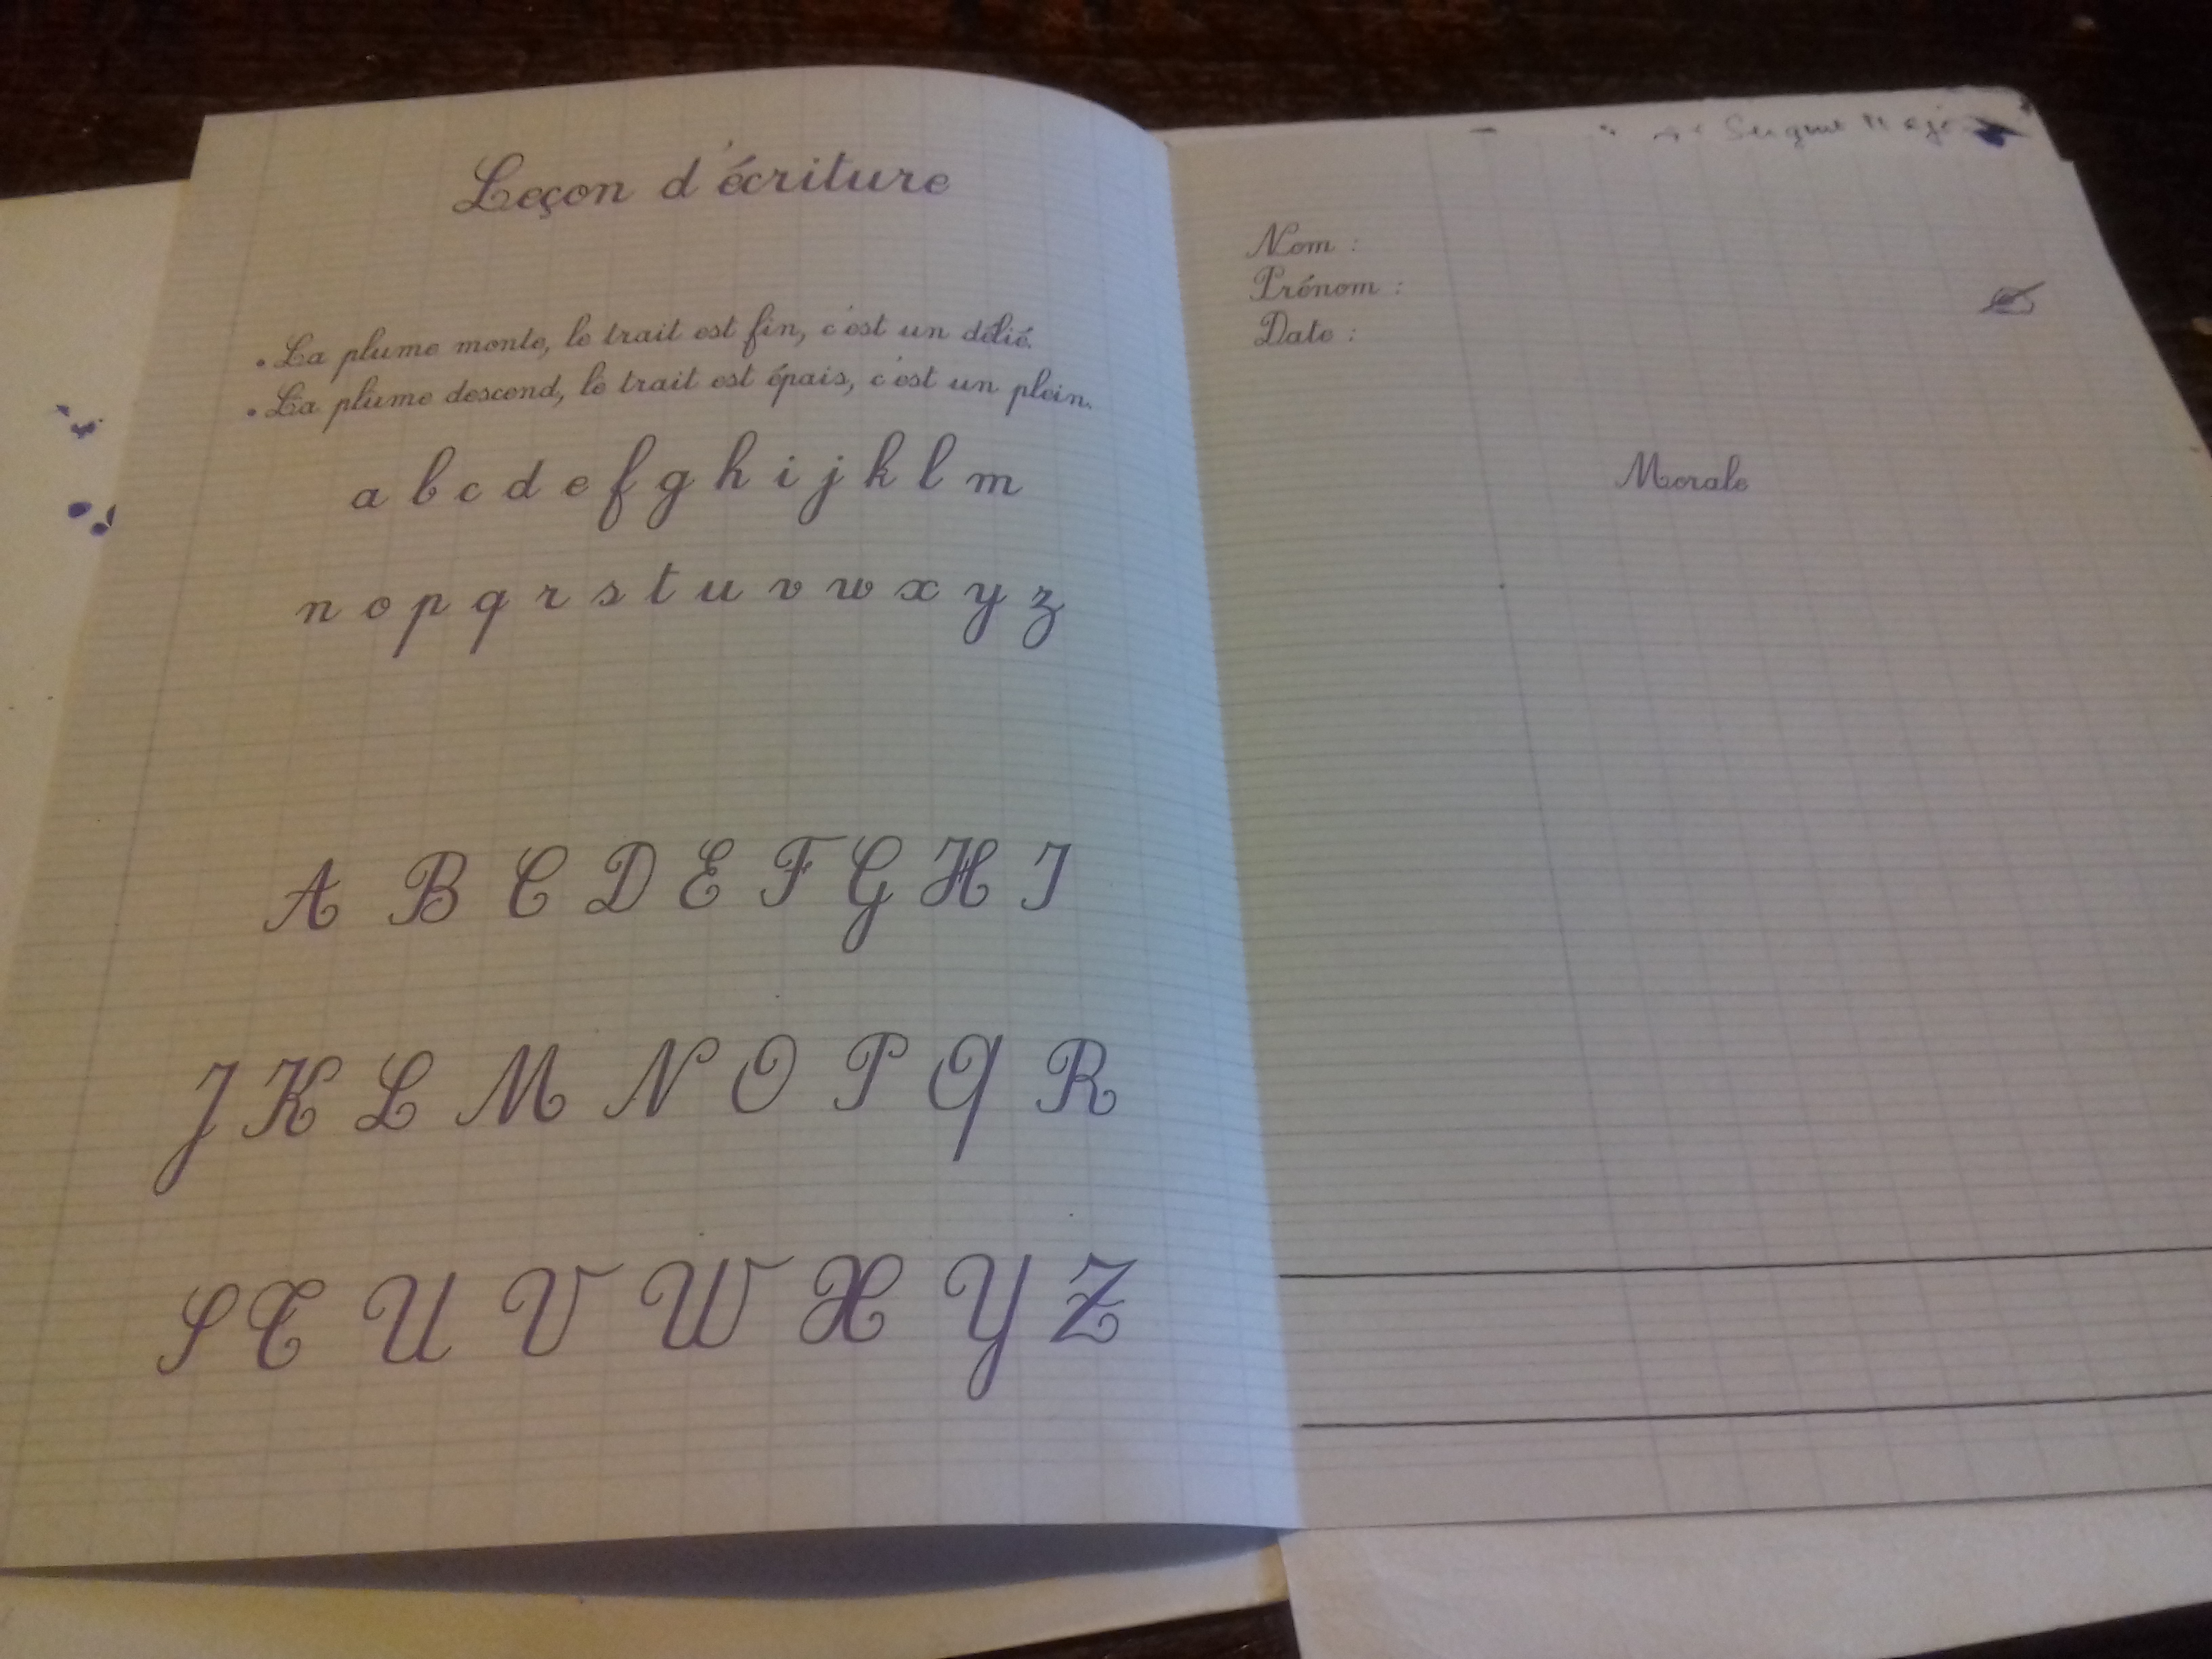 Leçon d'écriture
• La plume monte, le trait est fin, c'est un délié.
• La plume descend, le trait est épais, c'est un plein.
a b c d e f g h i j k l m
n o p q r s t u v w x y z
A B C D E F G H I
J K L M N O P Q R
S T U V W X Y Z
Nom :
Prénom :
Date :
Morale